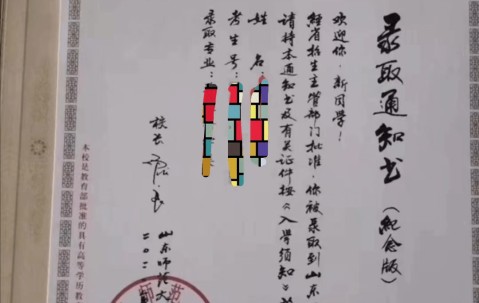 录取通知书（纪念版）
欢迎你，新同学！
经省招生主管部门批准，你被录取到山东
请持本通知书及有关证件按《入学须知》
姓 名：
考生号：
录取专业：
校长
山东师范大
二〇二
本校是教育部批准的具有高等学历教
师范